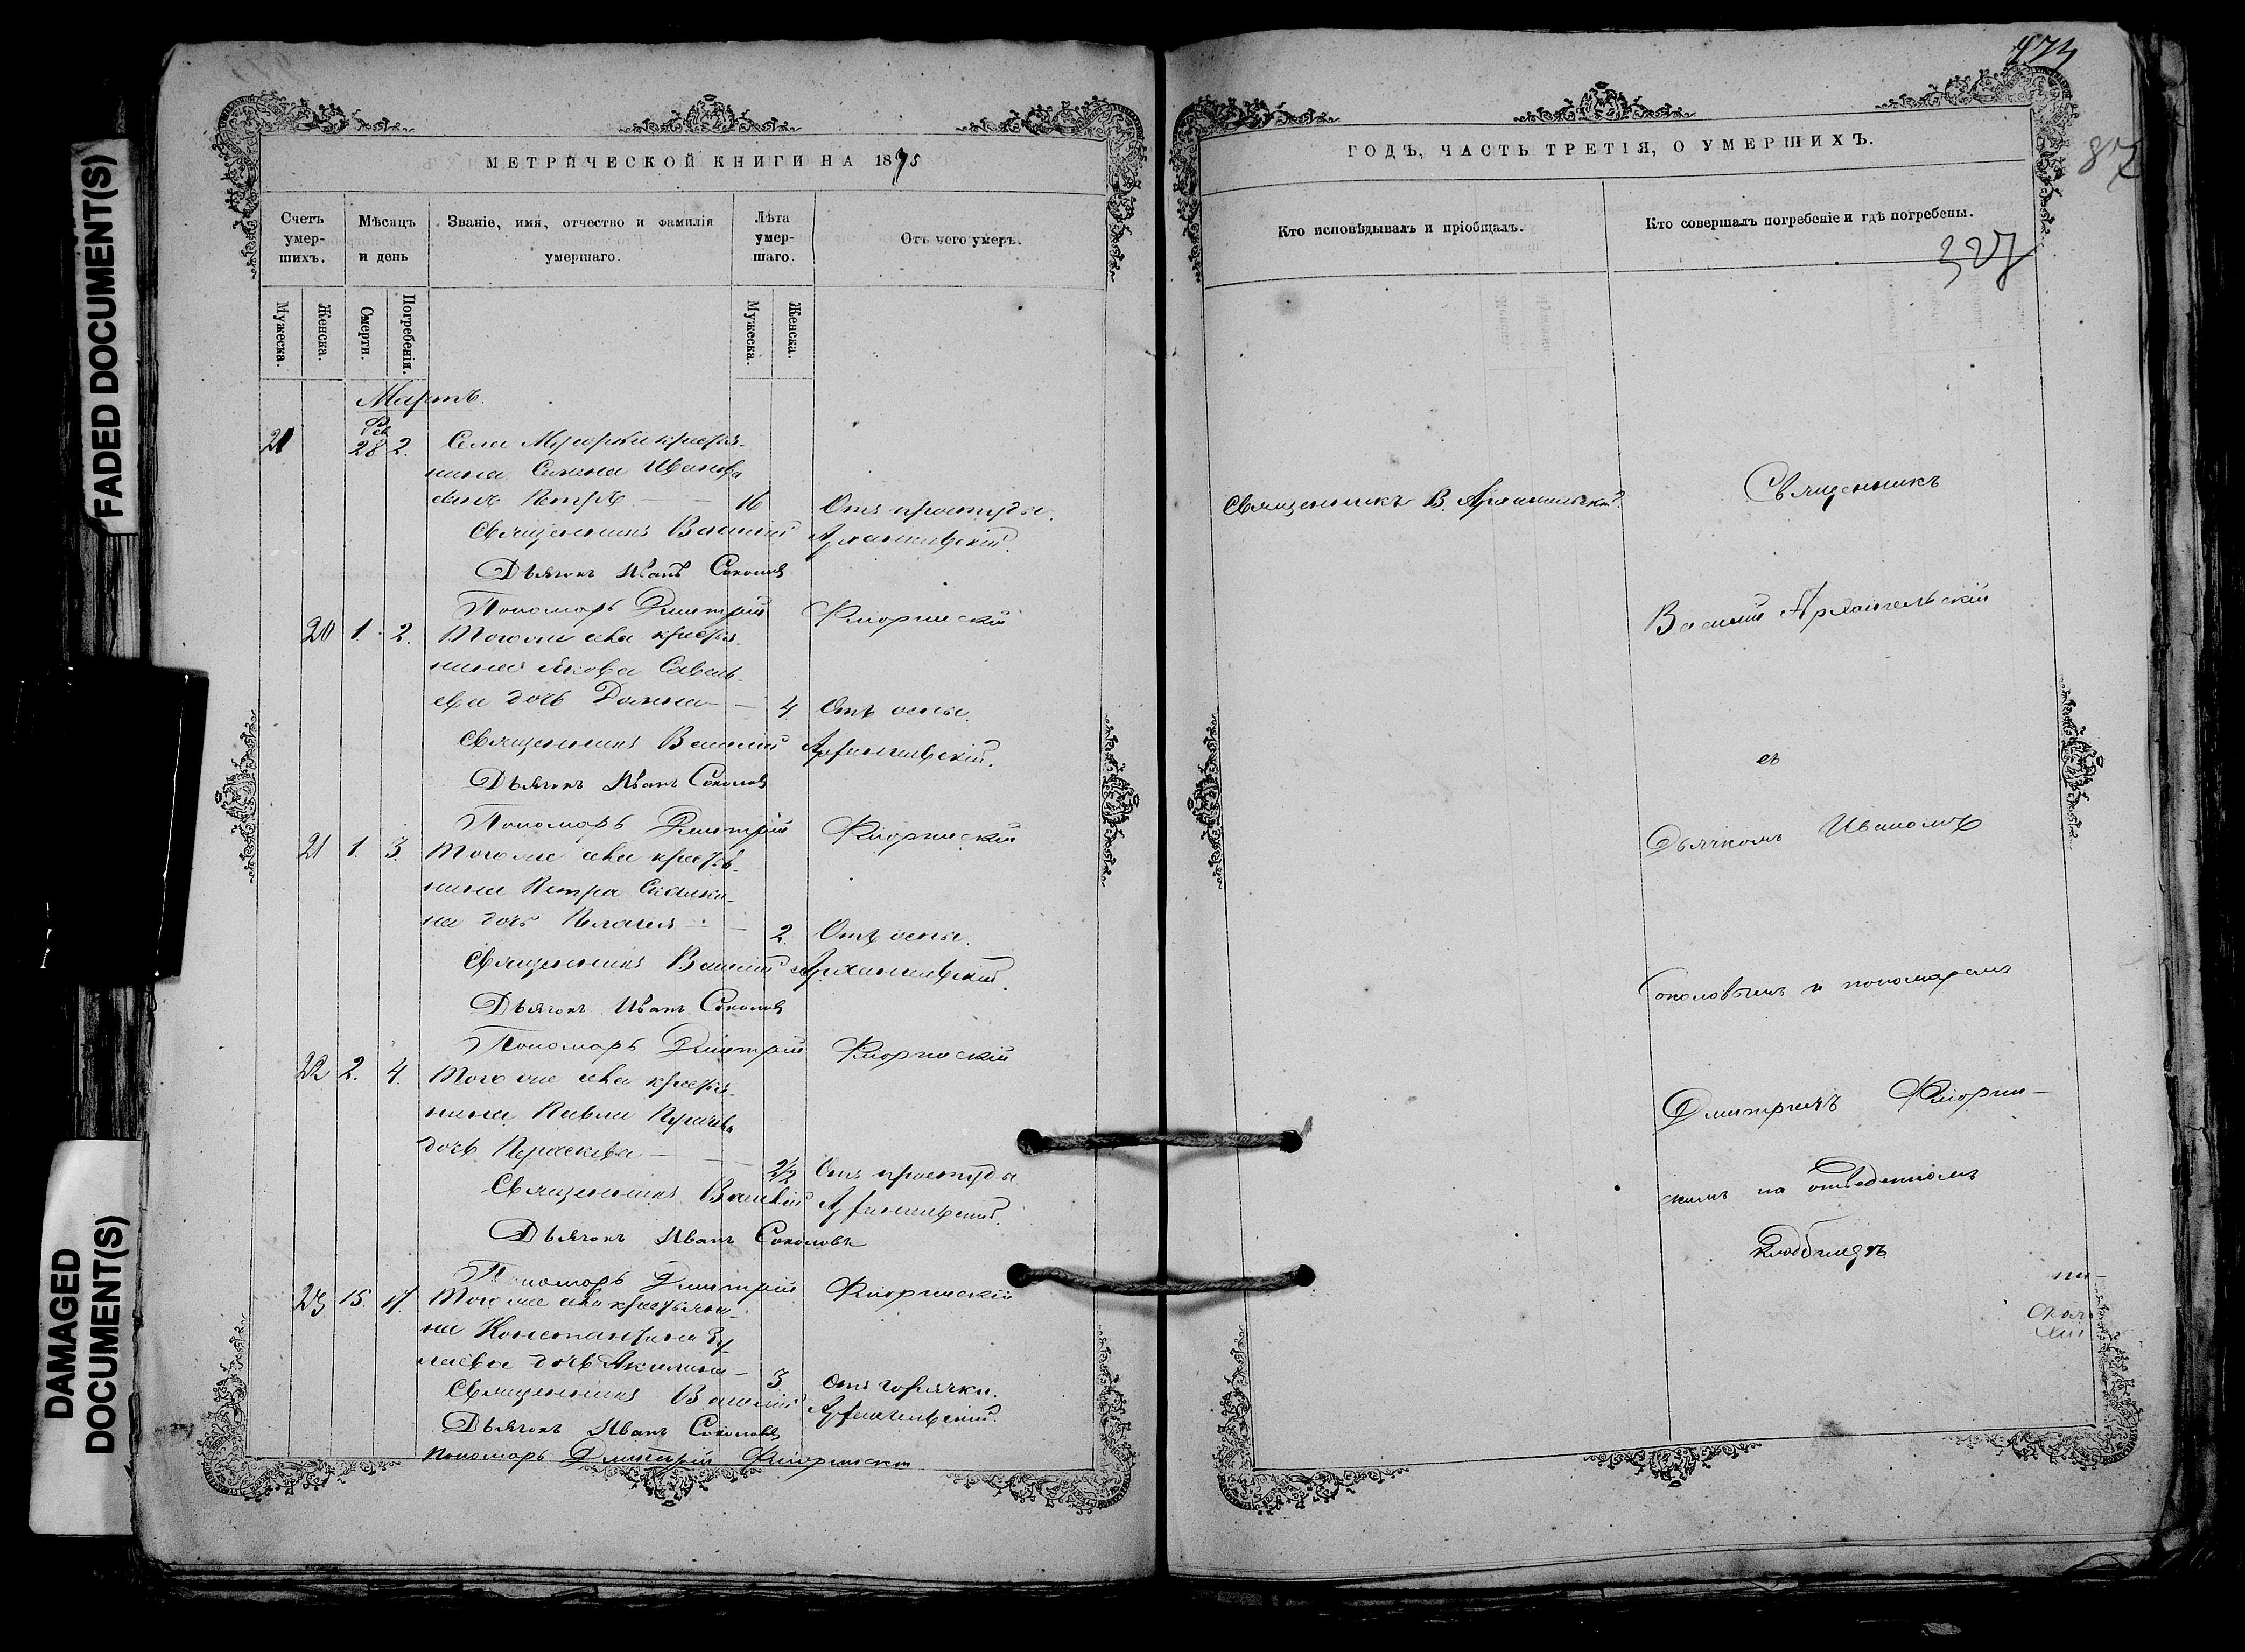 FADED DOCUMENT(S)
DAMAGED
DOCUMENT(S)
МЕТРИЧЕСКОЙ КНИГИ НА 1875
Счетъ умер-
шихъ.
Мѣсяцъ
и день
Званіе, имя, отчество и фамилія
умершаго.
Лѣта
умер-
шаго.
Отъ чего умеръ.
Мужеска.
Женска.
Смерти.
Погребенія.
Мужеска.
Женска.
Мартъ.
Фев
21 28 2. Села Мусорки крестья-
нина Семена Иванова
сынъ Петръ — — 16 Отъ простуды.
Священникъ Василій Архангельскій.
Дьячокъ Иванъ Соколовъ
Пономарь Дмитрій Флоринскій
20 1. 2. Того же села крестья-
нина Якова Савель-
ева дочь Домна — — 4 Отъ оспы.
Священникъ Василій Архангельскій.
Дьячокъ Иванъ Соколовъ
Пономарь Дмитрій Флоринскій
21 1. 3. Того же села крестья-
нина Петра
на дочь Пелагея — — 2. Отъ оспы.
Священникъ Василій Архангельскій.
Дьячокъ Иванъ Соколовъ
Пономарь Дмитрій Флоринскій
22 2. 4. Того же села крестья-
нина Павла
дочь Параскева — — 2½ Отъ простуды
Священникъ Василій Архангельскій.
Дьячокъ Иванъ Соколовъ
Пономарь Дмитрій Флоринскій
23 15. 17. Того же села крестьяни-
на Константина
дочь Акилина — 3 Отъ горячки.
Священникъ Василій Архангельскій.
Дьячокъ Иванъ Соколовъ
Пономарь Дмитрій Флоринскій
ГОДЪ, ЧАСТЬ ТРЕТІЯ, О УМЕРШИХЪ.
87
Кто исповѣдывалъ и пріобщалъ.
Кто совершалъ погребеніе и гдѣ погребены.
327
Священникъ В. Архангельскій
Священникъ
Василій Архангельскій
съ
Дьячкомъ Иваномъ
Соколовымъ и пономаремъ
Дмитріемъ Флорин-
скимъ на отведенномъ
кладбищѣ